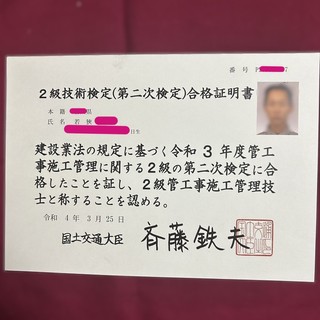 番号 P 7
2級技術検定(第二次検定)合格証明書
本籍 県
氏名 若狭
日生
建設業法の規定に基づく令和3年度管工
事施工管理に関する2級の第二次検定に合
格したことを証し、2級管工事施工管理技
士と称することを認める。
令和4年3月25日
国土交通大臣 斉藤鉄夫